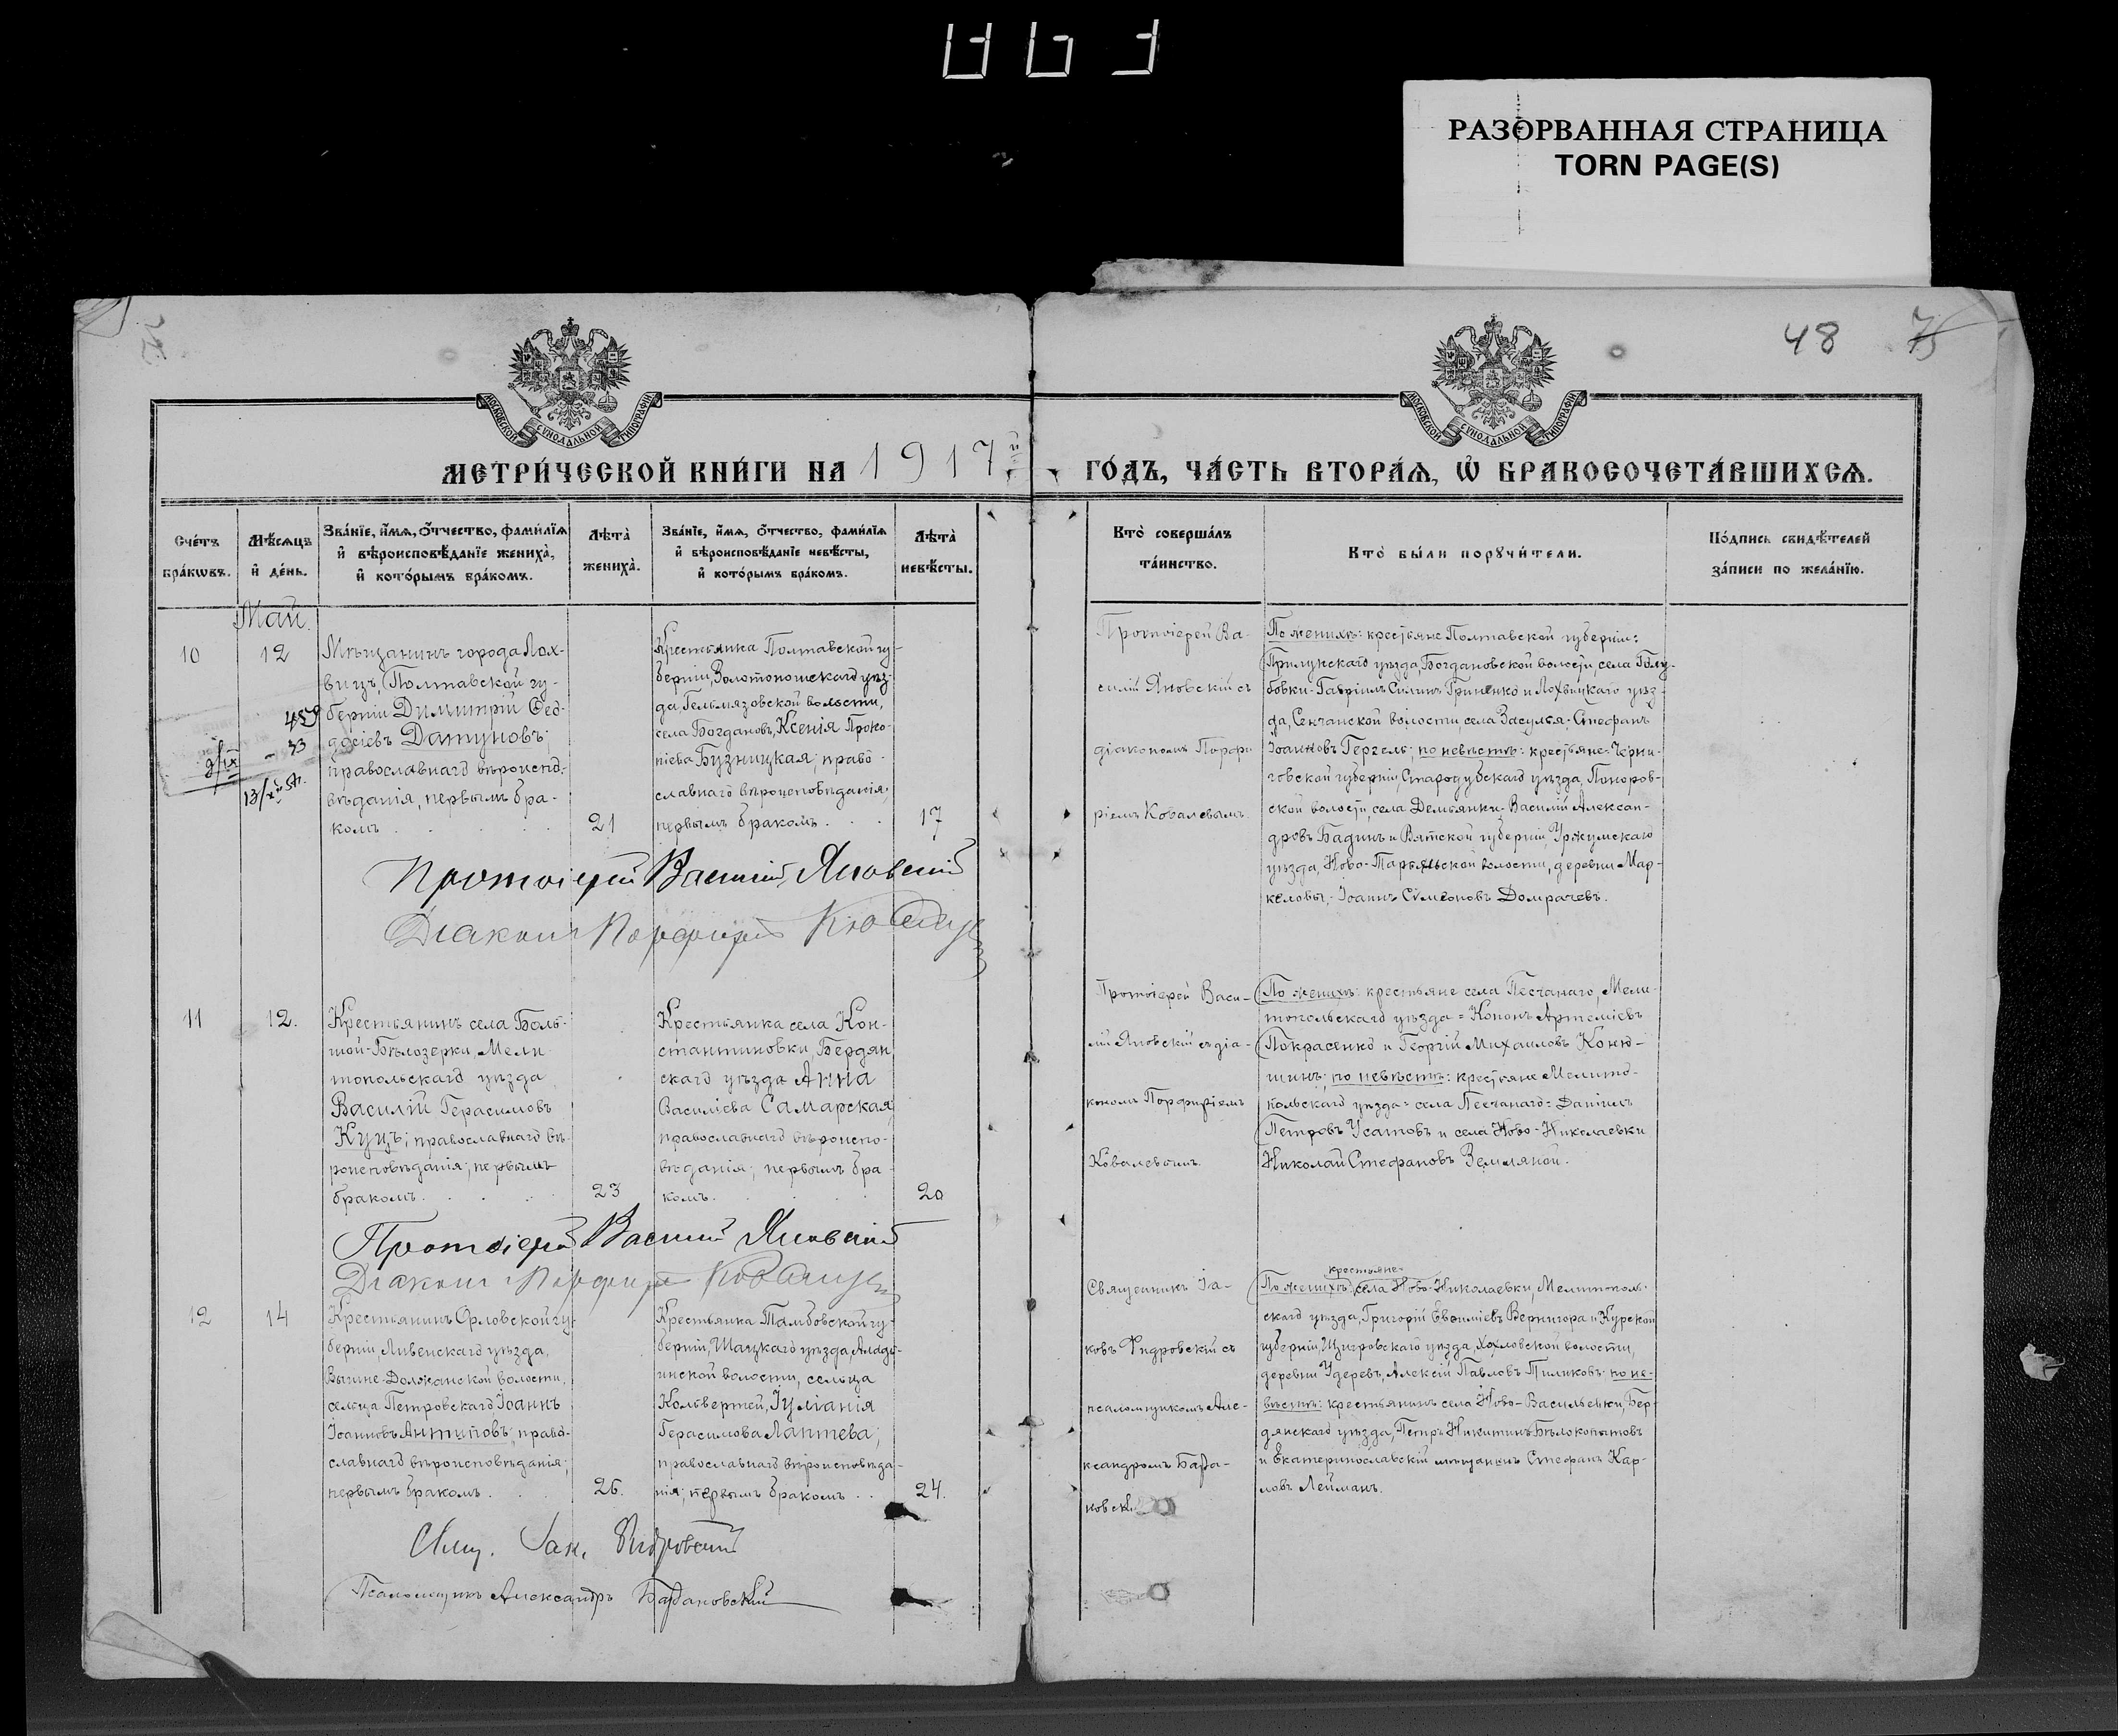 РАЗОРВАННАЯ СТРАНИЦА
TORN PAGE(S)
48
75
МОСКОВСКОЙ СѴНОДАЛЬНОЙ ТИПОГРАФІИ
МОСКОВСКОЙ СѴНОДАЛЬНОЙ ТИПОГРАФІИ
МЕТРИ́ЧЕСКОЙ КНИ́ГИ НА 1917й ГО́ДЪ, ЧА́СТЬ ВТОРА́Ѧ, Ѡ҆ БРАКОСОЧЕТА́ВШИХСѦ.
Сче́тъ бра́кѡвъ.
Мѣ́сѧцъ и҆ де́нь.
Зва́нїе, и҆́мѧ, ѻ҆́тчество, фами́лїѧ
и҆ вѣроисповѣ́данїе жениха̀,
и҆ кото́рымъ бра́комъ.
Лѣта̀ жениха̀.
Зва́нїе, и҆́мѧ, ѻ҆́тчество, фами́лїѧ
и҆ вѣроисповѣ́данїе невѣ́сты,
и҆ кото́рымъ бра́комъ.
Лѣта̀ невѣ́сты.
Кто̀ соверша́лъ
та́инство.
Кто̀ бы́ли порꙋчи́тели.
По́дпись свидѣ́телей
за́писи по жела́нїю.
Май
10
12
Мѣщанинъ города Лох-
вицъ, Полтавской гу-
берніи Димитрій Ѳео-
досіевъ Датуновъ;
православнаго вѣроиспо-
вѣданія, первымъ бра-
комъ
21
Крестьянка Полтавской гу-
берніи, Золотоношскаго уѣз-
да, Гельмязовской волости,
села Богдановъ, Ксенія Проко-
піева Бузницкая; право-
славнаго вѣроисповѣданія;
первымъ бракомъ
17
Протоіерей Ва-
силій Яновскій съ
діакономъ Порфи-
ріемъ Ковалевымъ.
По женихѣ: крестьяне Полтавской губерніи:
Прилукскаго уѣзда, Богдановской волости, села Голу-
бовки - Гавріилъ Силинъ Гриненко и Лохвицкаго уѣз-
да, Сенчанской волости, села Засулья - Стефанъ
Іоанновъ Гергель; по невѣстѣ: крестьяне: Черни-
говской губерніи, Стародубскаго уѣзда, Поноров-
ской волости, села Демьянки - Василій Алексан-
дровъ Бадинъ и Вятской губерніи, Уржумскаго
уѣзда, Ново-Торъяльской волости, деревни Мар-
келовы, - Іоаннъ Сѵмеоновъ Домрачевъ.
Протоіерей Василій Яновскій
Діаконъ Порфирій
11
12.
Крестьянинъ села Боль-
шой-Бѣлозерки, Мели-
топольскаго уѣзда
Василій Герасимовъ
Куцъ; православнаго вѣ-
роисповѣданія; первымъ
бракомъ.
23
Крестьянка села Кон-
стантиновки, Бердян
скаго уѣзда Анна
Василіева Самарская
православнаго вѣроиспо-
вѣданія; первымъ бра-
комъ.
20
Протоіерей Васи-
лій Яновскій съ діа-
кономъ Порфиріемъ
Ковалевымъ.
По женихѣ: крестьяне села Песчанаго, Мели-
топольскаго уѣзда = Кононъ Артеміевъ
Покрасенко и Георгій Михаиловъ Коню-
шинъ; по невѣстѣ: крестьяне Мелито-
польскаго уѣзда = села Песчанаго = Даніилъ
Петровъ Усатовъ и села Ново-Николаевки
Николай Стефановъ Земляной.
Протоіерей Василій Яновскій
Діаконъ Порфирій
12
14
Крестьянинъ Орловской гу-
берніи, Ливенскаго уѣзда,
Вышне-Должанской волости,
сельца Петровскаго Іоаннъ
Іоанновъ Антиповъ; право-
славнаго вѣроисповѣданія;
первымъ бракомъ.
26.
Крестьянка Тамбовской гу-
берніи, Шацкаго уѣзда,
инской волости, сельца
Іуліанія
Герасимова Лаптева;
православнаго вѣроисповѣда-
нія; первымъ бракомъ
24.
Священникъ Іа-
ковъ Фидровскій съ
псаломщикомъ Але-
ксандромъ
По женихѣ: крестьяне села Ново-Николаевки, Мелитополь-
скаго уѣзда, Григорій Евѳиміевъ Вернигора и Курской
губерніи, Щигровскаго уѣзда, Хохловской волости,
деревни Удеревъ, Алексій Павловъ Пиликовъ; по не-
вѣстѣ: крестьянинъ села Ново-Васильевки, Бер-
дянскаго уѣзда, Петръ Никитинъ Бѣлокопытовъ
и Екатеринославскій мѣщанинъ Стефанъ Кар-
ловъ Лейманъ.
Свящ. Іак. Фидровскій
Псаломщикъ Александръ